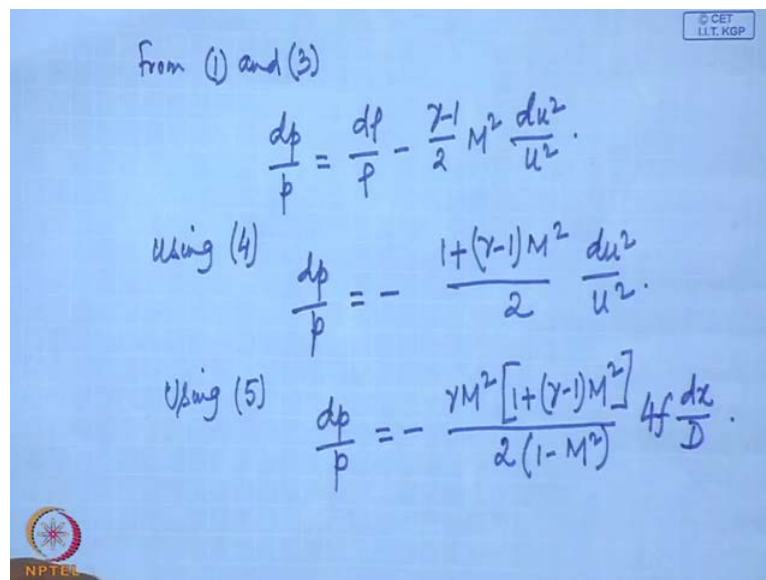 © CET
I.I.T. KGP
From (1) and (3)
dp/p = dρ/ρ - γ-1/2 M² du²/u².
Using (4)
dp/p = - 1+(γ-1)M²/2 du²/u².
Using (5)
dp/p = - γM²[1+(γ-1)M²]/2(1-M²) 4f dx/D.
NPTEL